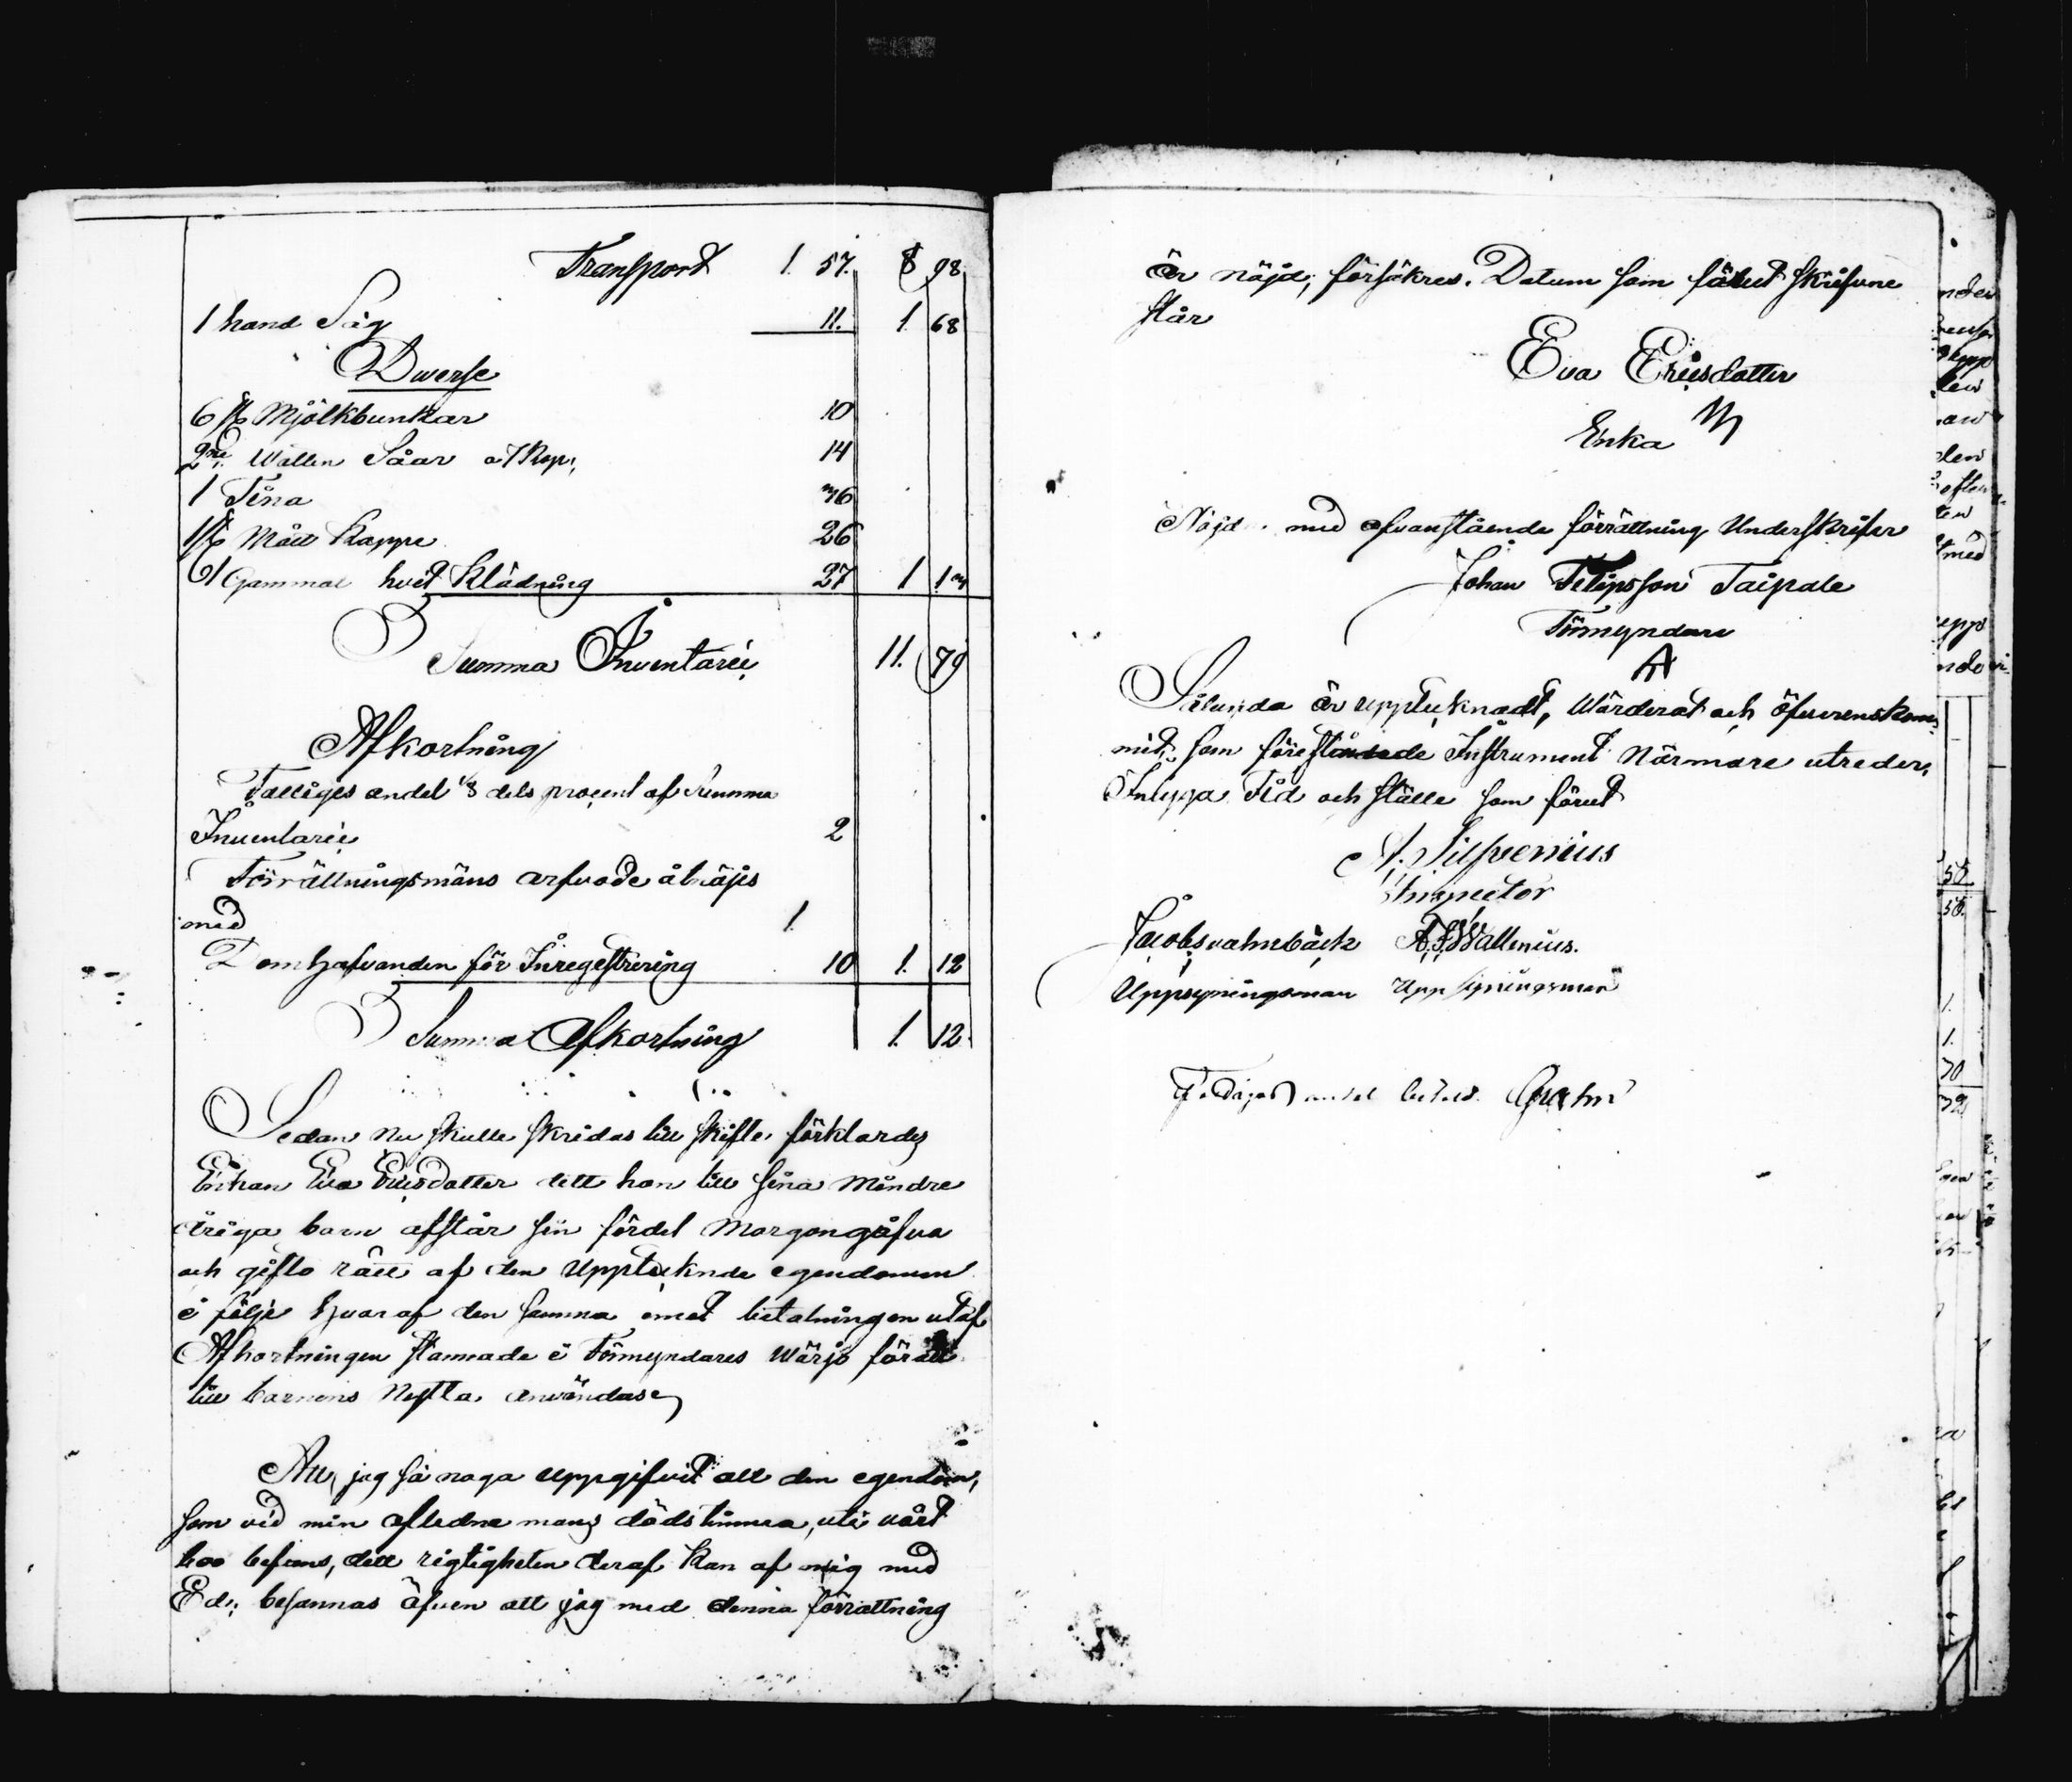 Transport 1. 57. 8 98
1 hand Såg 11. 1. 68
Diverse
6 st Mjölkbunkar 10
2ne Watten Såar a 7 Kop: 14
1 Tina 36
1 st Mått Kappe 26
1 Gammal hvit Klädning 27 1 13
Summa Inventarii 11. 79
Afkortning
Fattiges andel 1/8 dels procent af Summa
Inventarii 2
Förrättningsmäns arfvode åtnöjes
med 1.
Domhafvanden för Inregestrering 10 1. 12
Summa Afkortning 1. 12.
Sedan Nu skulle skridas till skifte förklarades
Enkan Eva Ericsdotter dett hon till sina Mindre
åriga barn afstår sin fördel Morgongåfva
och gifto rätt af den Upptecknde egendomen
i följe hvaraf den samma emot betalningen utaf
Afkortningen stannade i Förmyndares Wärjo för att
till barnens Nytta användas
Att jag så noga uppgifvit all den egendom,
som vid min aflidne mans dödstimma, uti vårt
boo befans, dett rigtigheten deraf kan af mig med
Ed: besannas äfven att jag med denna förrättning
är nöjd, försäkras. Datum som förut skrifvne
står
Eva Ericsdotter
Enka
Nöjd med ofvanstående förrättning Underskrifver
Johan Filipsson Taipale
Förmyndare
Sålunda är upptecknadt, Wärderat och öfverenskom-
mit, som förestående Instrument Närmare utreder,
Intyga Tid och ställe som förut
A. Silfvenius
Inspector
Jacob Vahnbäck A. F. Wallenius.
Uppsyningsman Uppsyningsman
Fattiges andel betald. Grahn